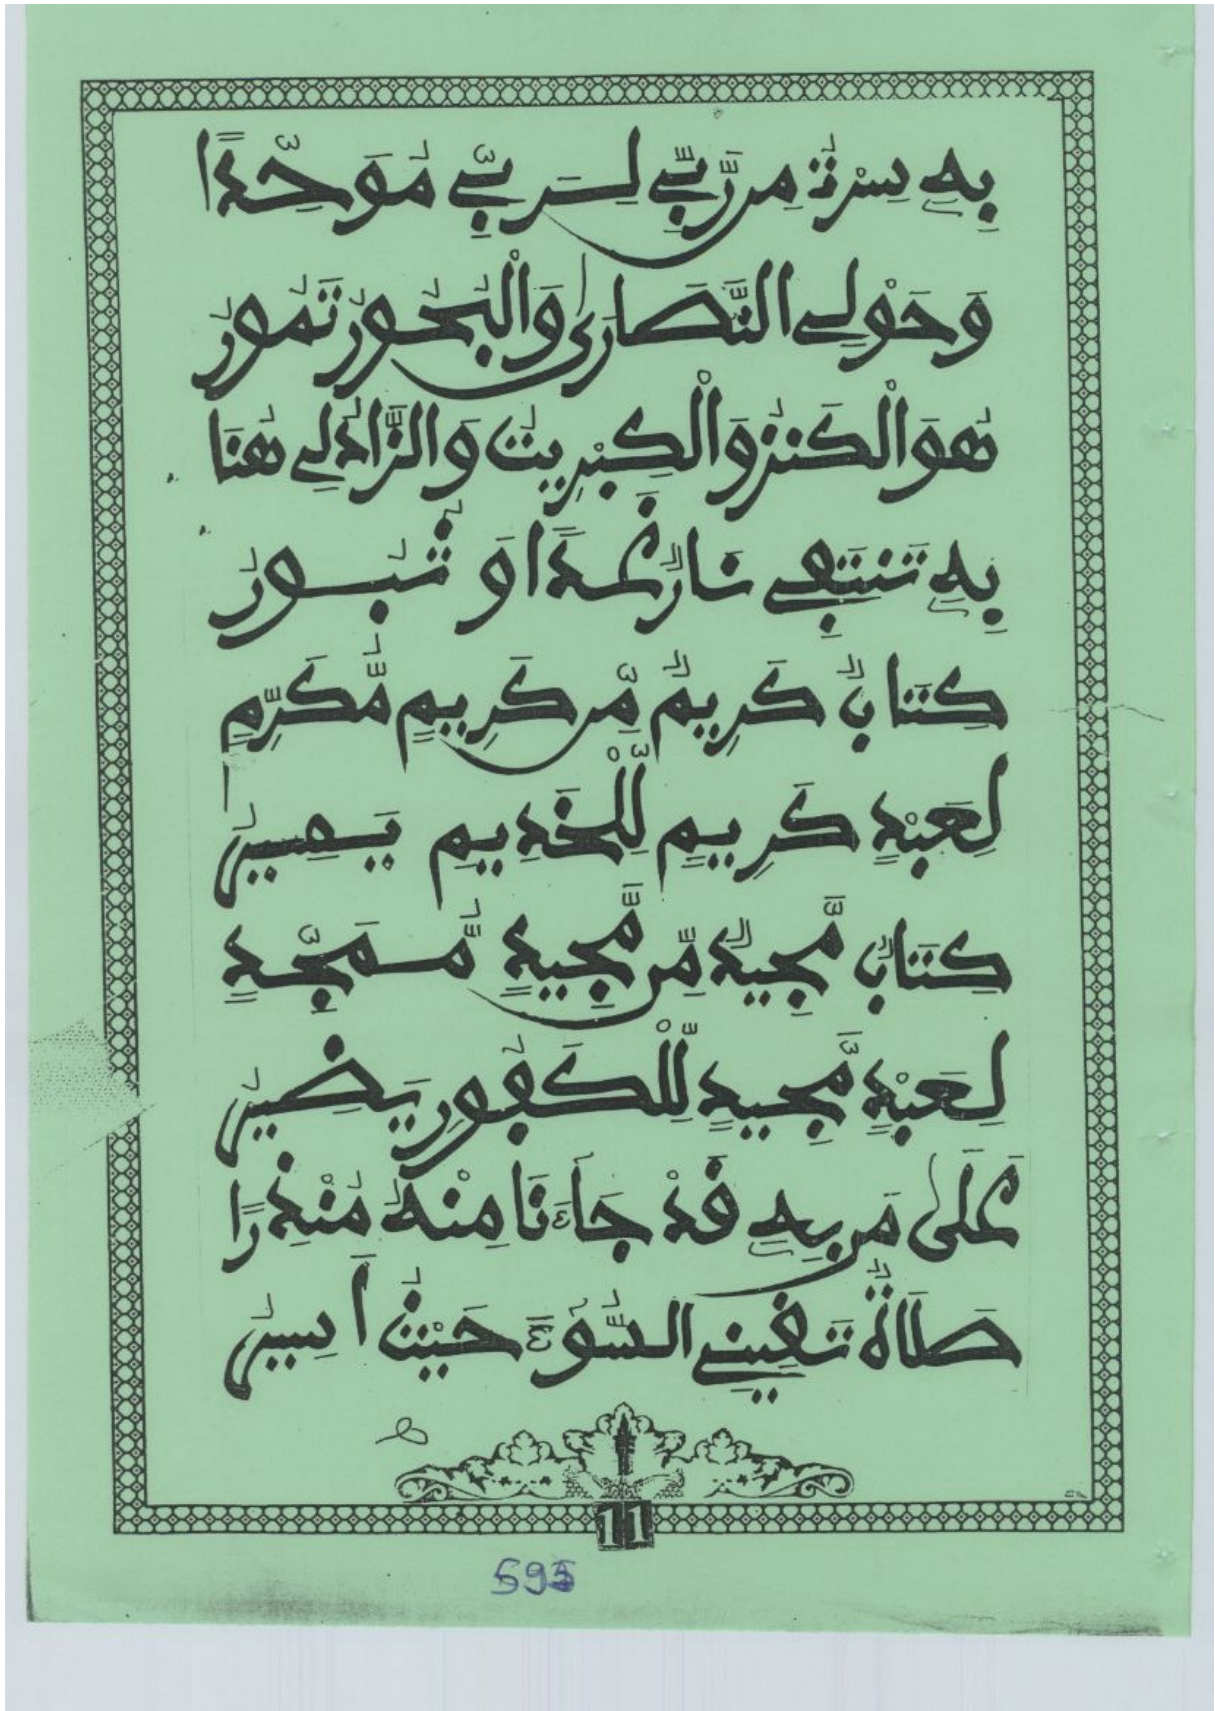 بِهِ سِرْتُ مِن رَّبِّي لِرَبِّي مُوَحِّدًا
وَحَوْلِي النَّصَارَى وَالْبُحُورُ تَمُورُ
هُوَ الْكَنْزُ وَالْكِبْرِيتُ وَالزَّادُ لِي هُنَا
بِهِ تَنتَفِي نَارٌ غَدًا وَثُبُورُ
كِتَابٌ كَرِيمٌ مِّن كَرِيمٍ مُّكَرِّمٍ
لِعَبْدٍ كَرِيمٍ لِّلْخَدِيمِ يَمِيرُ
كِتَابٌ مَّجِيدٌ مِّن مَّجِيدٍ مُّمَجِّدٍ
لِعَبْدٍ مَّجِيدٍ لِّلْكَفُورِ يَضِيرُ
عَلَى مَن بِهِ قَدْ جَاءَنَا مِنْهُ مُنْذِرًا
صَلَاةٌ تَقِينِي السُّوءَ حَيْثُ أَسِيرُ
11
595